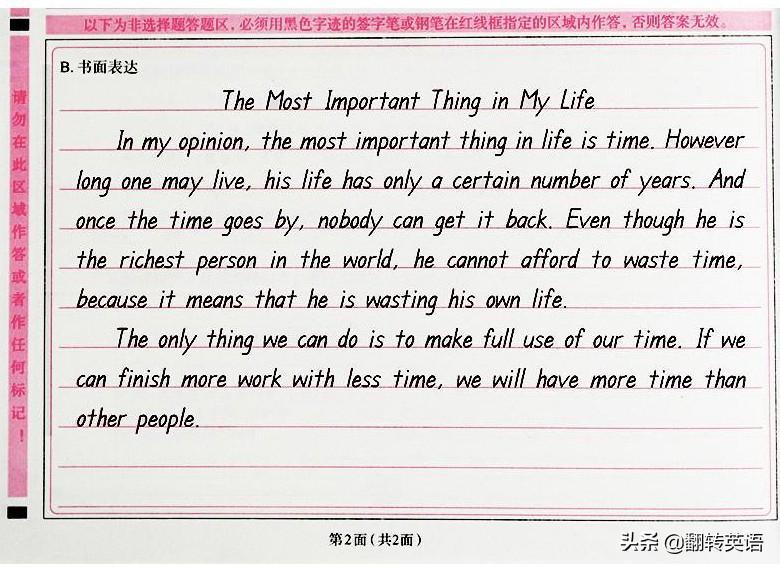 以下为非选择题答题区，必须用黑色字迹的签字笔或钢笔在红线框指定的区域内作答，否则答案无效。
请勿在此区域作答或者作任何标记！
B. 书面表达
The Most Important Thing in My Life
In my opinion, the most important thing in life is time. However
long one may live, his life has only a certain number of years. And
once the time goes by, nobody can get it back. Even though he is
the richest person in the world, he cannot afford to waste time,
because it means that he is wasting his own life.
The only thing we can do is to make full use of our time. If we
can finish more work with less time, we will have more time than
other people.
第2面(共2面)
头条 @翻转英语